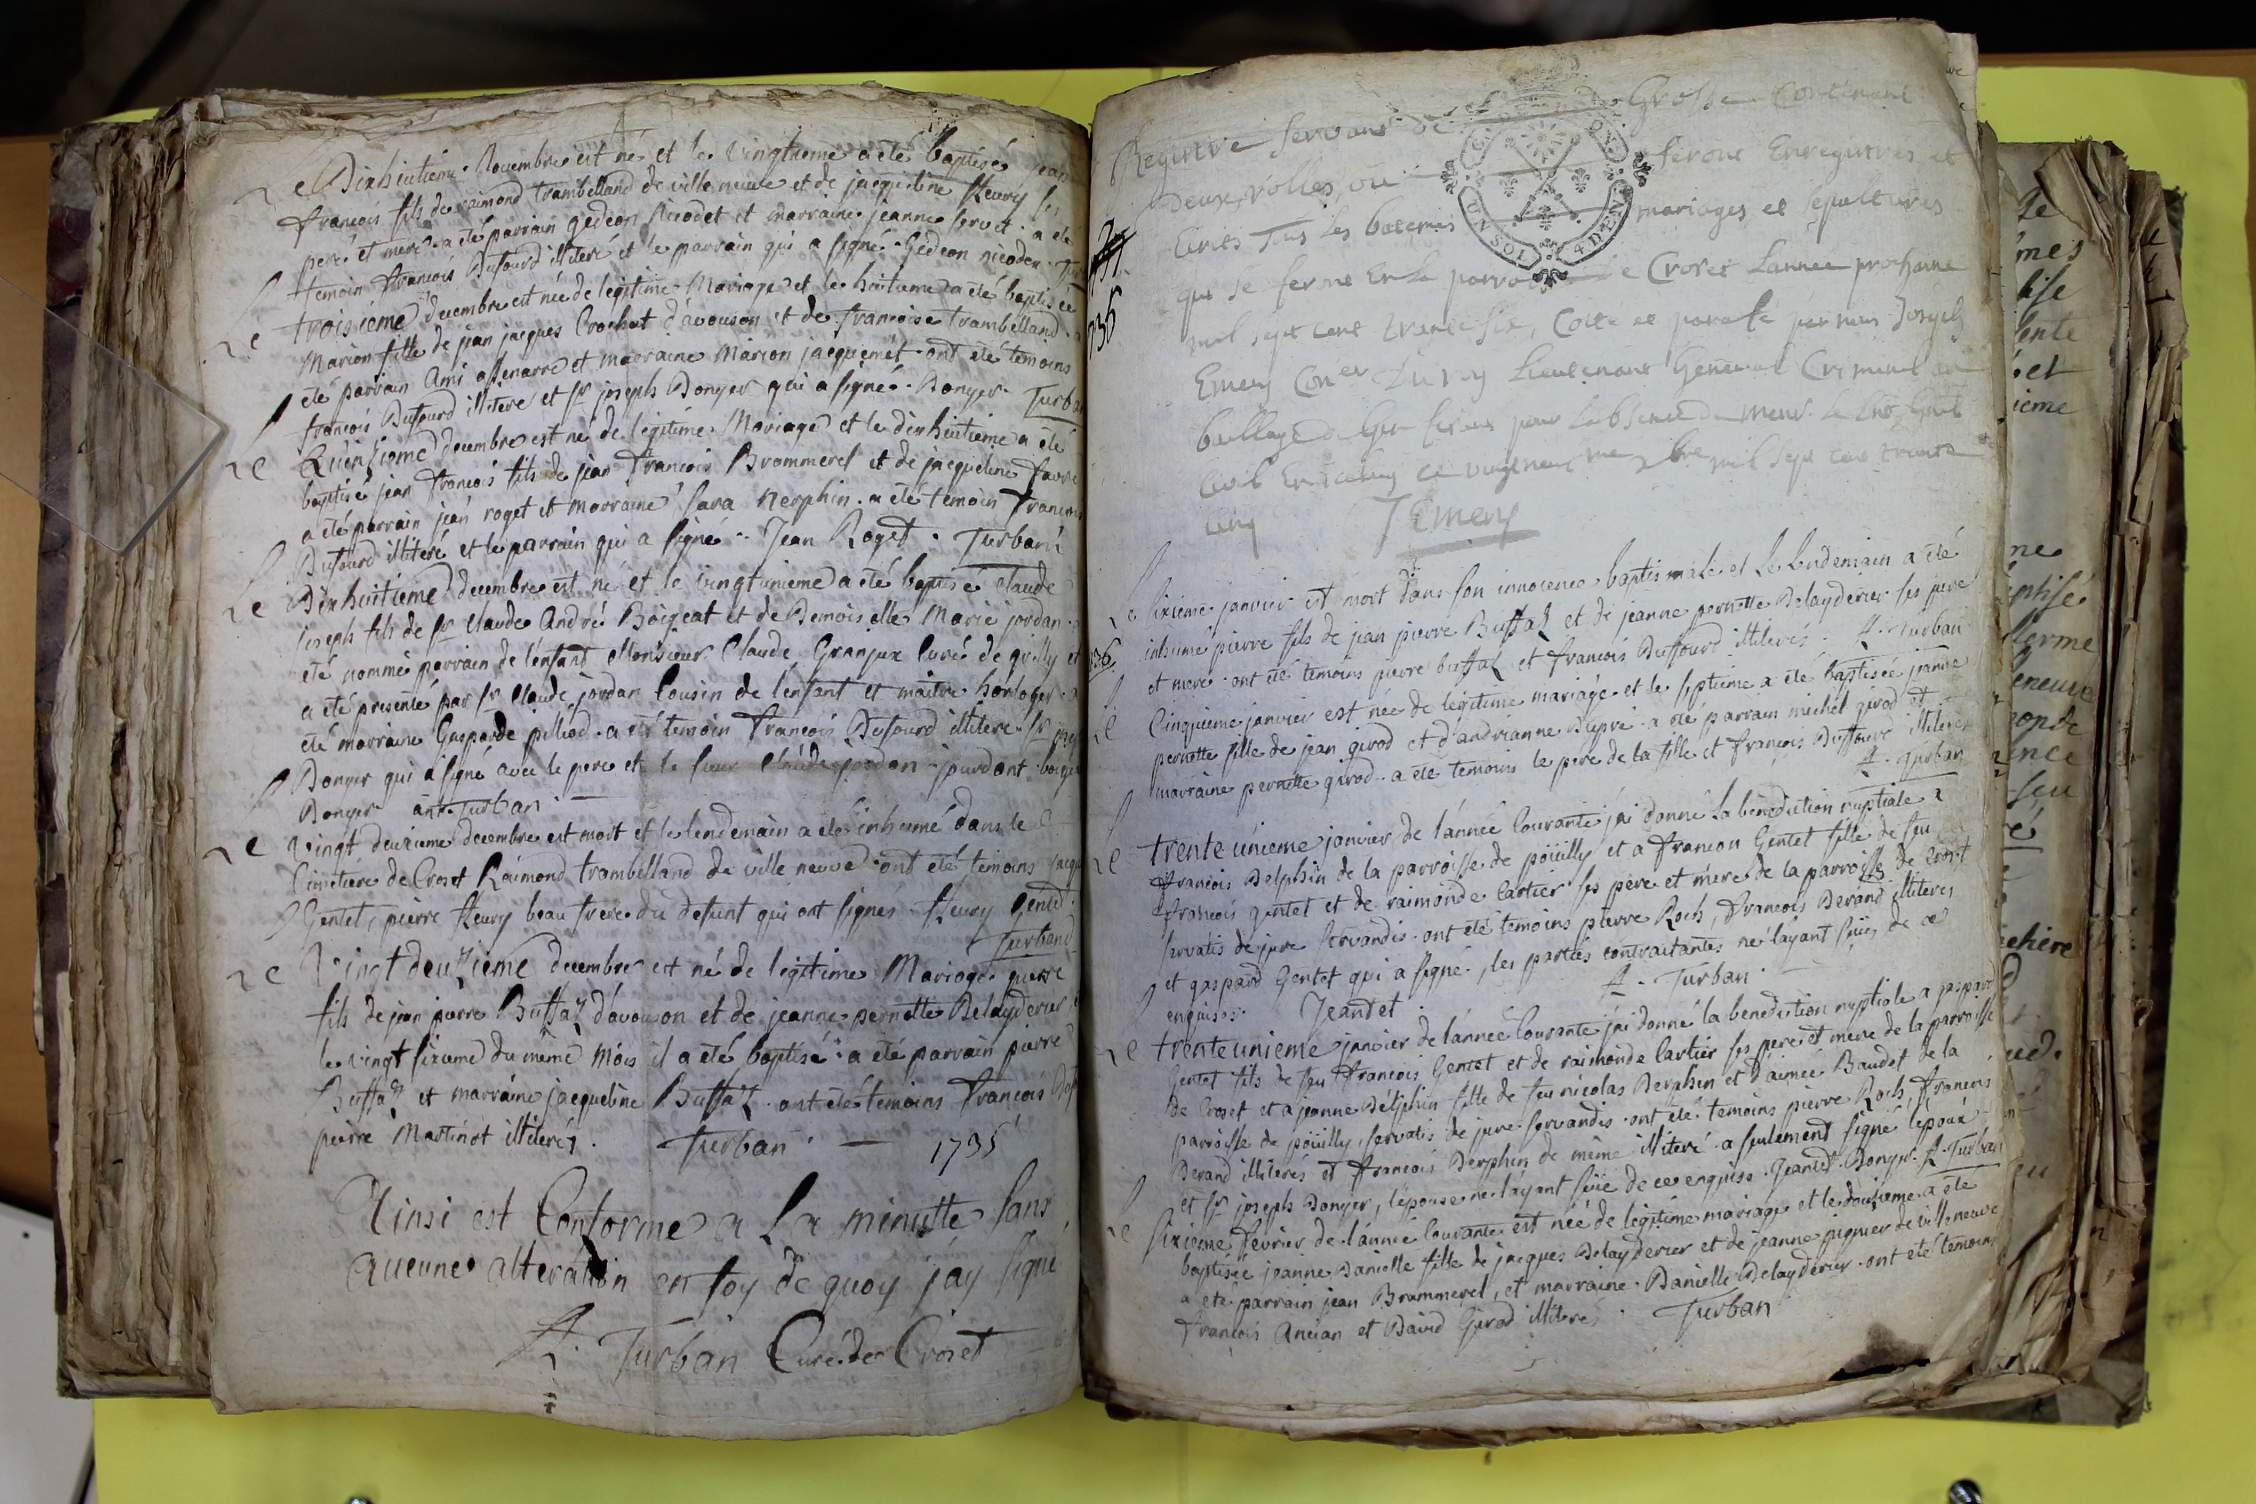 Le Dixhuitieme Novembre est né et le vingtieme a été baptisé jean
francois fils de raimond trambelland de ville neuve et de jacqueline fleury ses
pere et mere a été parrain gedeon nicodet et marraine jeanne servet a été
temoin francois Dufourd illiteré et le parrain qui a signé Gedeon nicodet
Le troisieme decembre est née de legitime Mariage et le huitieme a été baptisée
Marion fille de jean jacques Crochat d'avouson et de francoise trambelland a
été parrain Ami assenarre et marraine Marion jacquemet ont été temoins
francois Dufourd illiteré et sr joseph Bonyer qui a signé Bonyer Turban
Le Quinsieme decembre est né de legitime Mariage et le dixhuitieme a été
baptisé jean francois fils de jean francois Brommerel et de jacqueline favre
a été parrain jean roget et marraine sara nerphin a été temoin francois
Dufourd illiteré et le parrain qui a signé Jean Roget Turban
Le Dixhuitieme decembre est né et le vingtunieme a été baptisé claude
joseph fils de sr claude André Boigeat et de Demoiselle Marie jordan a
été nommé parrain de l'enfant Monsieur Claude Granjux Curé de grilly et
a été presenté par sr Claude jordan Cousin de l'enfant et maitre horloger a
été marraine Gasparde pilliod a été temoin francois Dufourd illiteré sr
Bonyer qui a signé avec le pere et le sieur claude jordan jourdant
Bonyer Turban
Le vingt deuxieme decembre est mort et le lendemain a été inhumé dans le
Cimetiere de Croset Raimond trambelland de ville neuve ont été temoins
Gentet, pierre fleury beau frere du defunt qui ont signés fleury Gentet
Turban
Le Vingt deuzieme decembre est né de legitime Mariage pierre
fils de jean pierre Buffaz d'avouson et de jeanne pernette Delayderier
le vingt sixieme du même Mois il a été baptisé a été parrain pierre
Buffaz et marraine jacqueline Buffaz ont été temoins francois
pierre Martinot illiterés. Turban 1735
Ainsi est Conforme a La minutte sans
aucune alteration en foy de quoy j'ay signé
A. Turban Curé de Croset
Registre servant de Grosse Contenant
Deux rolles, ou seront Enregistrés et
Ecrits Tous les batemes mariages et sepultures
qui se feront En la parroisse de Croset Lannee prochaine
mil sept cent trente six, Cotté et paraffé par nous Joseph
Emery Coner Du roy Lieutenant General Criminel au
baillage de Gex pour Labsence de
Civil ce vingtneuf mil sept cent trente
cinq JEmery
1736
Le sixieme janvier est mort dans son innocence baptismale et Le lendemain a été
inhumé pierre fils de jean pierre Buffaz et de jeanne pernette Delayderier ses pere
et mere ont été temoins pierre buffaz et francois Duffourd illiterés. A. Turban
Le Cinquieme janvier est née de légitime mariage et le septieme a été baptisée jeanne
pernette fille de jean girod et d'andrianne Dupré a été parrain michel girod et
marraine pernette girod a été temoins le pere de la fille et francois Duffourd illiterés
A. Turban
Le trente unieme janvier de l'année Courante j'ai donné la benediction nuptiale a
francois Delphin de la parroisse de pöüilly et a francon Gentet fille de feu
francois gentet et de raimonde Cartier ses pere et mere de la parroisse de Croset
servatis de jure servandis ont été temoins pierre Roch, francois Derand illiterés
et gaspard Gentet qui a signé, les parties contractantes ne l'ayant sçüe de ce
enquises. Jeandet. A. Turban
Le trenteunieme janvier de l'année Courante j'ai donné la benediction nuptiale a gaspard
Gentet fils de feu francois Gentet et de raimonde Cartier ses pere et mere de la parroisse
de Croset et a jeanne Delphin fille de feu nicolas Derphin et d'aimée Baudet de la
parroisse de pöüilly, servatis de jure servandis ont été temoins pierre Roch, francois
Derand illiterés et francois Derphin de même illiteré a seulement signé l'époux
et sr joseph Bonyer, l'épouse ne l'ayant sçüe de ce enquise. Jeantet. Bonyer. A. Turban
Le sixieme fevrier de l'année Courante est née de légitime mariage et le douzieme a été
baptisée jeanne Danielle fille de jacques Delayderier et de jeanne pignier de villeneuve
a été parrain jean Brammerel, et marraine Danielle Delayderier ont été temoins
francois Ancian et David Girod illiterés. Turban